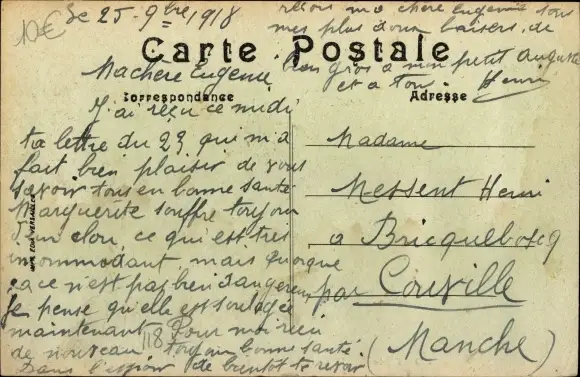 10€
Le 25-9bre 1918
Carte Postale
Correspondance
Ma chere Eugenie
J'ai reçu ce midi
ta lettre du 23 qui m'a
fait bien plaisir de vous
savoir tous en bonne santé
Marguerite souffre toujours
d'un clou, ce qui est très
incommodant, mais quoique
ça ce n'est pas bien dangereux
Je pense qu'elle est soulagée
maintenant Pour moi rien
de nouveau, toujours bonne santé.
Dans l'espoir de bientôt te revoir
reçois ma chere Eugenie tous
mes plus doux baisers, de
bien gros a mon petit Auguste
et a tous. Henri
Adresse
Madame
Messent Henri
a Bricquebosq
par Couville
(Manche)
118
IMP. EDIA VERSAILLES